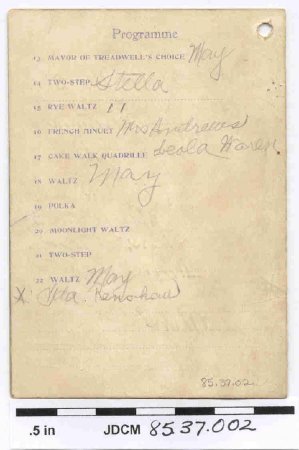 Programme
13 MAYOR OF TREADWELL'S CHOICE May
14 TWO-STEP Stella
15 RYE WALTZ 11
16 FRENCH MINUET Mrs Andrews
17 CAKE WALK QUADRILLE Leola
18 WALTZ May
19 POLKA
20 MOONLIGHT WALTZ
21 TWO-STEP
22 WALTZ May
X
85.37.02
.5 in JDCM 85.37.002